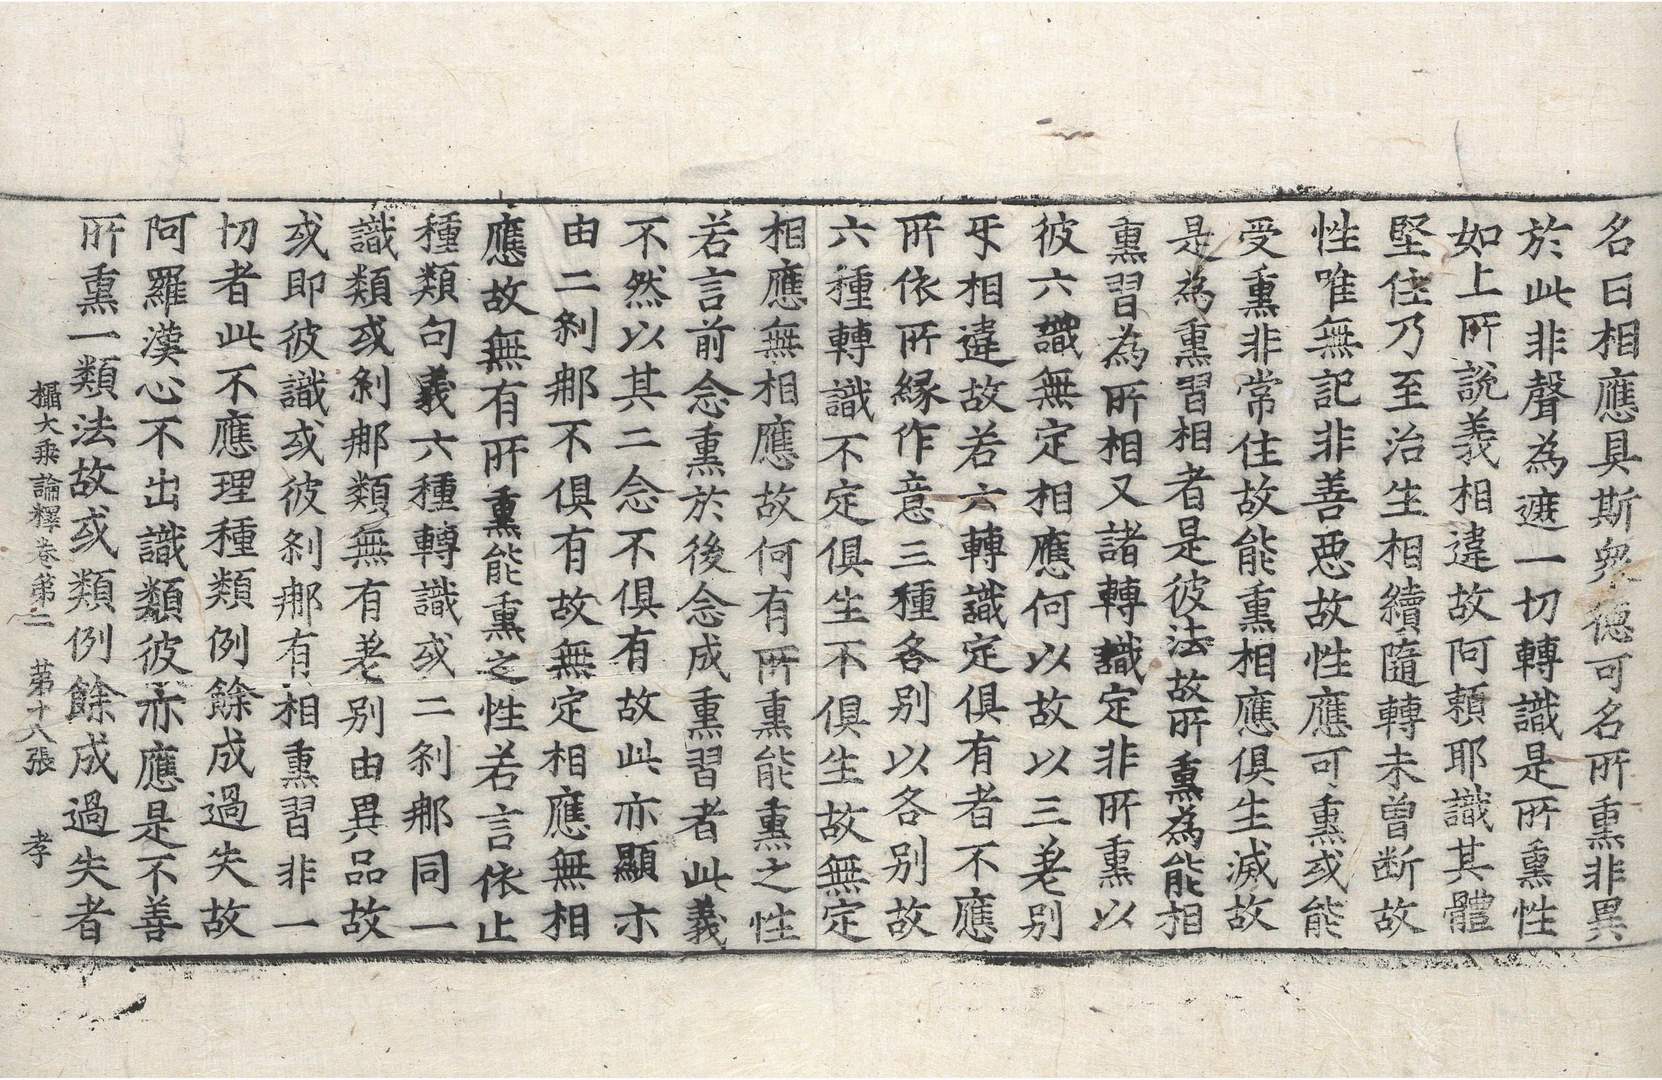 名曰相應具斯衆德可名所熏非異
於此非聲為遮一切轉識是所熏性
如上所説義相違故阿頼耶識其體
堅住乃至治生相續隨轉未曾斷故
性唯無記非善惡故性應可熏或能
受熏非常住故能熏相應俱生滅故
是為熏習相者是彼法故所熏為能相
熏習為所相又諸轉識定非所熏以
彼六識無定相應何以故以三差別
互相違故若六轉識定俱有者不應
所依所緣作意三種各別以各別故
六種轉識不定俱生不俱生故無定
相應無相應故何有所熏能熏之性
若言前念熏於後念成熏習者此義
不然以其二念不俱有故此亦顯示
由二剎那不俱有故無定相應無相
應故無有所熏能熏之性若言依止
種類句義六種轉識或二剎那同一
識類或剎那類無有差別由異品故
或即彼識或彼剎那有相熏習非一
切者此不應理種類例餘成過失故
阿羅漢心不出識類彼亦應是不善
所熏一類法故或類例餘成過失者
攝大乘論釋卷第二　第十八張　孝